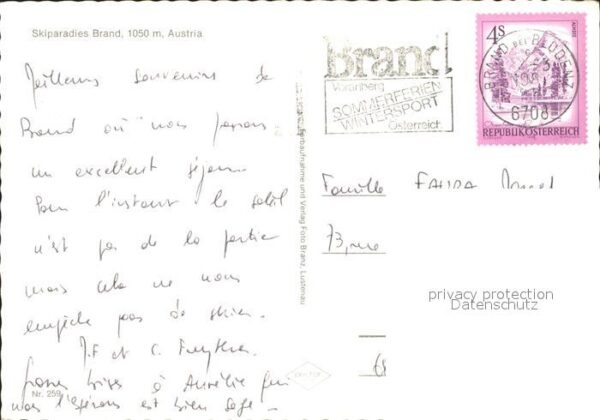 Skiparadies Brand, 1050 m, Austria
Meilleurs souvenirs de
Brand où nous passons
un excellent séjour.
Pour l'instant le soleil
n'est pas de la partie
mais cela ne nous
empêche pas de skier.
J.F et C.
grosses bises à Aurélie qui
nous l'espérons est bien sage.
Nr. 259
Farbaufnahme und Verlag Foto Branz, Lustenau
Brand
Vorarlberg
SOMMERFERIEN
WINTERSPORT
Österreich
4S
BRAND BEI BLUDENZ
6708
REPUBLIK ÖSTERREICH
Famille
73, rue
privacy protection
Datenschutz